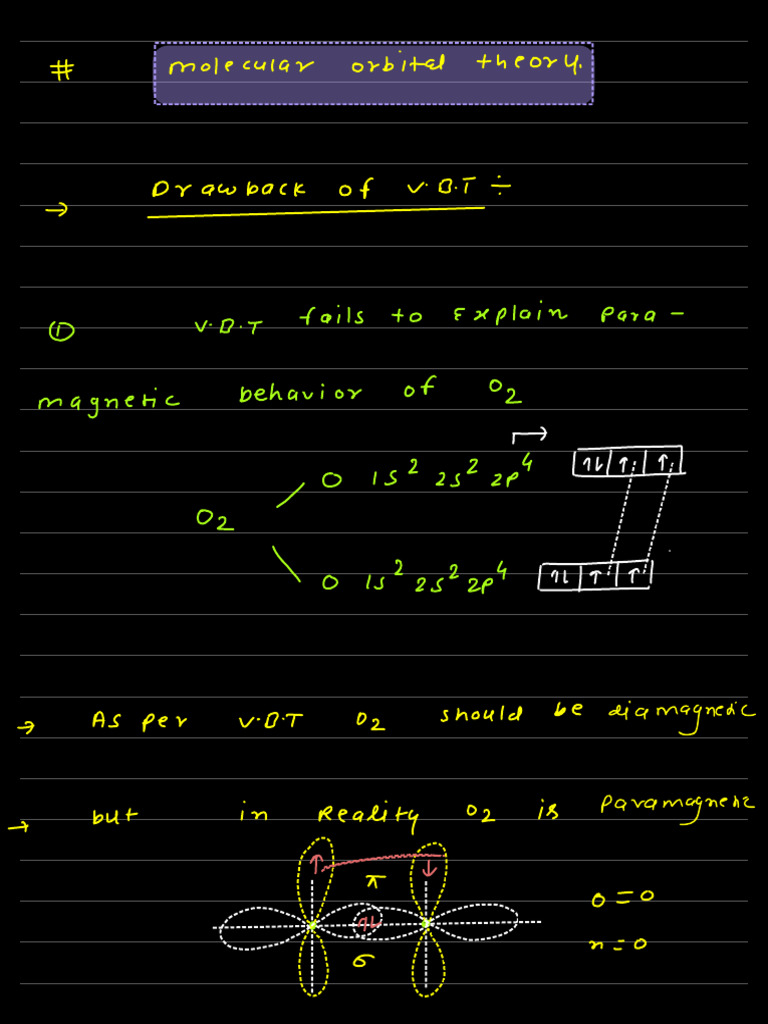 # molecular orbital theory.
→ Drawback of V.B.T ÷
① V.B.T fails to Explain Para-
magnetic behavior of O2
O 1s² 2s² 2p⁴ → ↑↓ ↑ ↑
O2
O 1s² 2s² 2p⁴ ↑↓ ↑ ↑
→ As per V.B.T O2 should be diamagnetic
→ but in Reality O2 is Paramagnetic
↑ ↓
π
O=O
↑↓
n=0
σ